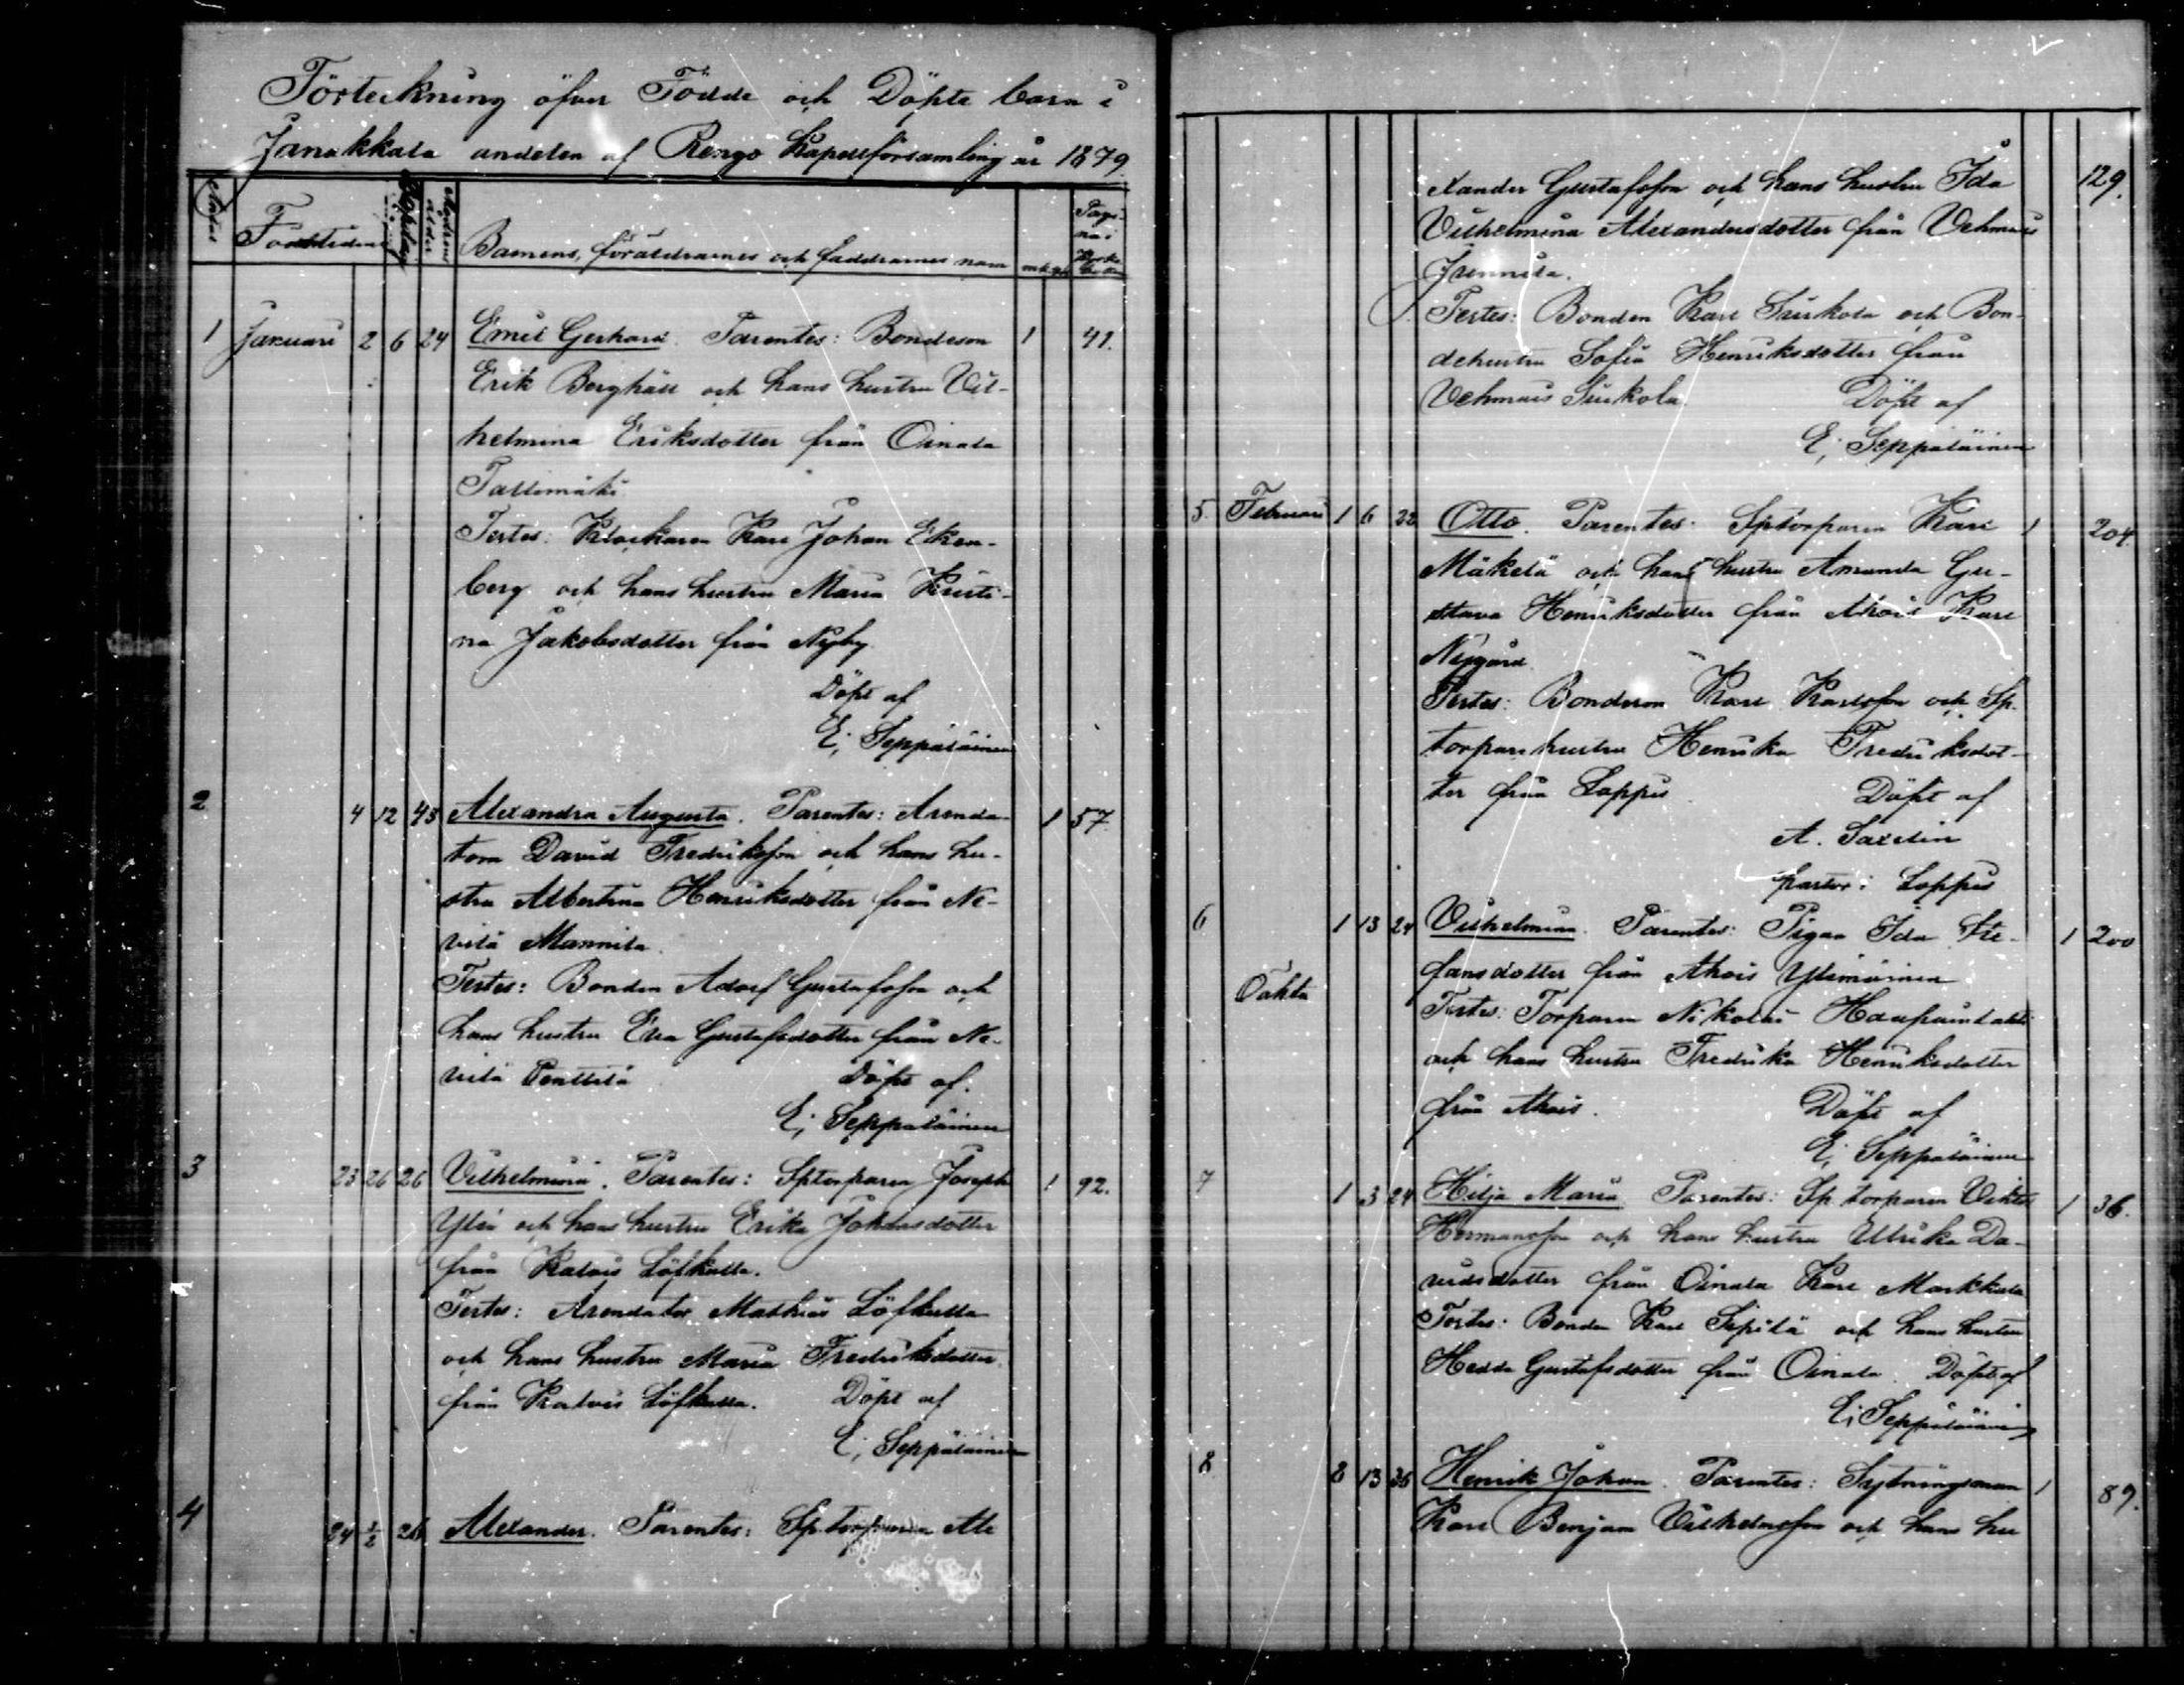 Förteckning öfver Födde och Döpte barn i
Janakkala andelen af Rengo Kapellförsamling år 1879.
Födelsetiden
Barnens, föräldrarnes och faddrarnes namn
1 Januari 2 6 24 Emil Gerhard. Parentes: Bondeson 1 41.
Erik Berghäll och hans hustru Vil-
helmina Eriksdotter från Oinala
Tallimäki
Testes: Klockaren Karl Johan Eken-
berg och hans hustru Maria Kristi-
na Jakobsdotter från Nyby.
Döpt af
E; Seppäläinen
2 4 12 43 Alexandra Augusta. Parentes: Arenda-
torn David Fredriksson och hans hu- 1 57.
stru Albertina Henriksdotter från Ne-
vilä Mannila.
Testes: Bonden Adolf Gustafsson och
hans hustru Eva Gustafsdotter från Ne-
vilä Penttilä Döpt af.
E; Seppäläinen
3 23 26 26 Vilhelmina. Parentes: Sptorparen Joseph 1 92.
Ylin och hans hustru Erika Johansdotter
från Kalois Löfkulla.
Testes: Arendator Mathias Löfkulla
och hans hustru Maria Fredriksdotter
från Kalois Löfkulla. Döpt af
E; Seppäläinen
4 24 1/2 26 Alexander. Parentes: Sp.torparen Ale
xander Gustafsson och hans hustru Ida 129.
Vilhelmina Alexandersdotter från Vehmais
Testes: Bonden Karl Suikola och Bon-
dehustru Sofia Henriksdotter från
Vehmais Suikola. Döpt af
E; Seppäläinen
5. Februari 1 6 32 Otto. Parentes: Sptorparen Karl 1 204.
Mäkelä och hans hustru Amanda Gu-
stava Henriksdotter från Ahois Karl
Nygård.
Testes: Bondeson Karl Karlsson och Sp.
torpare hustru Henrika Fredriksdot-
ter från Loppis Döpt af
A. Saxelin
pastor i Loppis
6 1 13 24 Vilhelmina. Parentes: Pigan Ida Ste- 1 200
fansdotter från Ahois Ylimäinen
Oäkta
Testes: Torparen Nikolai
och hans hustru Fredrika Henriksdotter
från Ahois. Döpt af
E; Seppäläinen
7 1 3 24 Hilja Maria. Parentes: Sp.torparen Viktor 1 36.
Hermansson och hans hustru Ulrika Da-
vidsdotter från Oinala Karl Markkula
Testes: Bonden Karl Sipilä och hans hustru
Hedda Gustafsdotter från Oinala. Döpt af
E; Seppäläinen
8 8 13 36 Henrik Johan. Parentes: Sytningsman 1 89.
Karl Benjam Vilhelmsson och hans hu